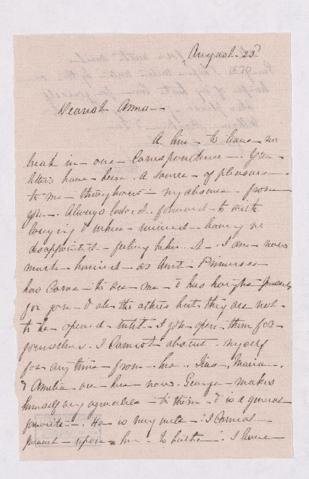 August. 23d
Dearest Anna—
A line to leave no
break in our Correspondence— Your
letters have been a source of pleasure—
to me throughout my absence— from
you. Always looked forward to with
longing & when received having no
disappointed feeling before it— I am now
much hurried— as Aunt
has come to see me— & has
for you— & all the others but they are not
to be opened until I open them for
yourselves. I cannot absent myself
for any time from her. Miss Maria
& Amelia are here now. George makes
himself very agreeable to them— & is a general
favorite. He is very well— I cannot
upon him to I have